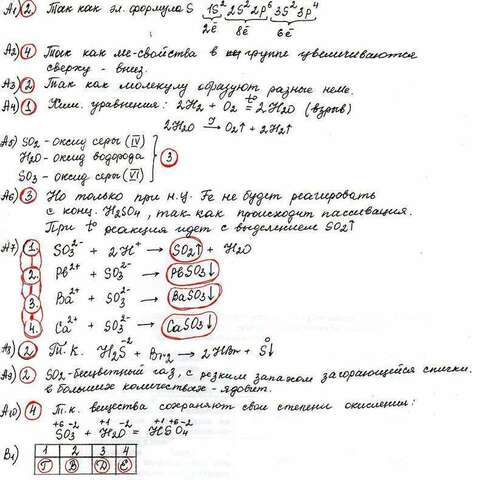 А1) 2 Так как эл. формула S 1S² 2S² 2p⁶ 3S² 3p⁴
2ē 8ē 6ē
А2) 4 Так как ме-свойства в группе увеличиваются
сверху - вниз.
А3) 2 Так как молекулу образуют разные неме.
А4) 1 Хим. уравнения: 2H2 + O2 =t° 2H2O (взрыв)
2H2O → O2↑ + 2H2↑
А5) SO2 - оксид серы (IV)
H2O - оксид водорода
SO3 - оксид серы (VI)
3
А6) 3 Но только при н.у. Fe не будет реагировать
с конц. H2SO4, так как происходит пассивация.
При t° реакция идет с выделением SO2↑
А7) 1. SO3²⁻ + 2H⁺ → SO2↑ + H2O
2. Pb²⁺ + SO3²⁻ → PbSO3↓
3. Ba²⁺ + SO3²⁻ → BaSO3↓
4. Ca²⁺ + SO3²⁻ → CaSO3↓
А8) 2 Т.к. H2S⁻² + Br2 → 2HBr + S⁰↓
А9) 2 SO2 - бесцветный газ, с резким запахом загорающейся спички,
в больших количествах - ядовит.
А10) 4 Т.к. вещества сохраняют свои степени окисления:
+6 -2 +1 -2 +1 +6 -2
SO3 + H2O = HSO4
В1) 1 2 3 4
Г В Д Е